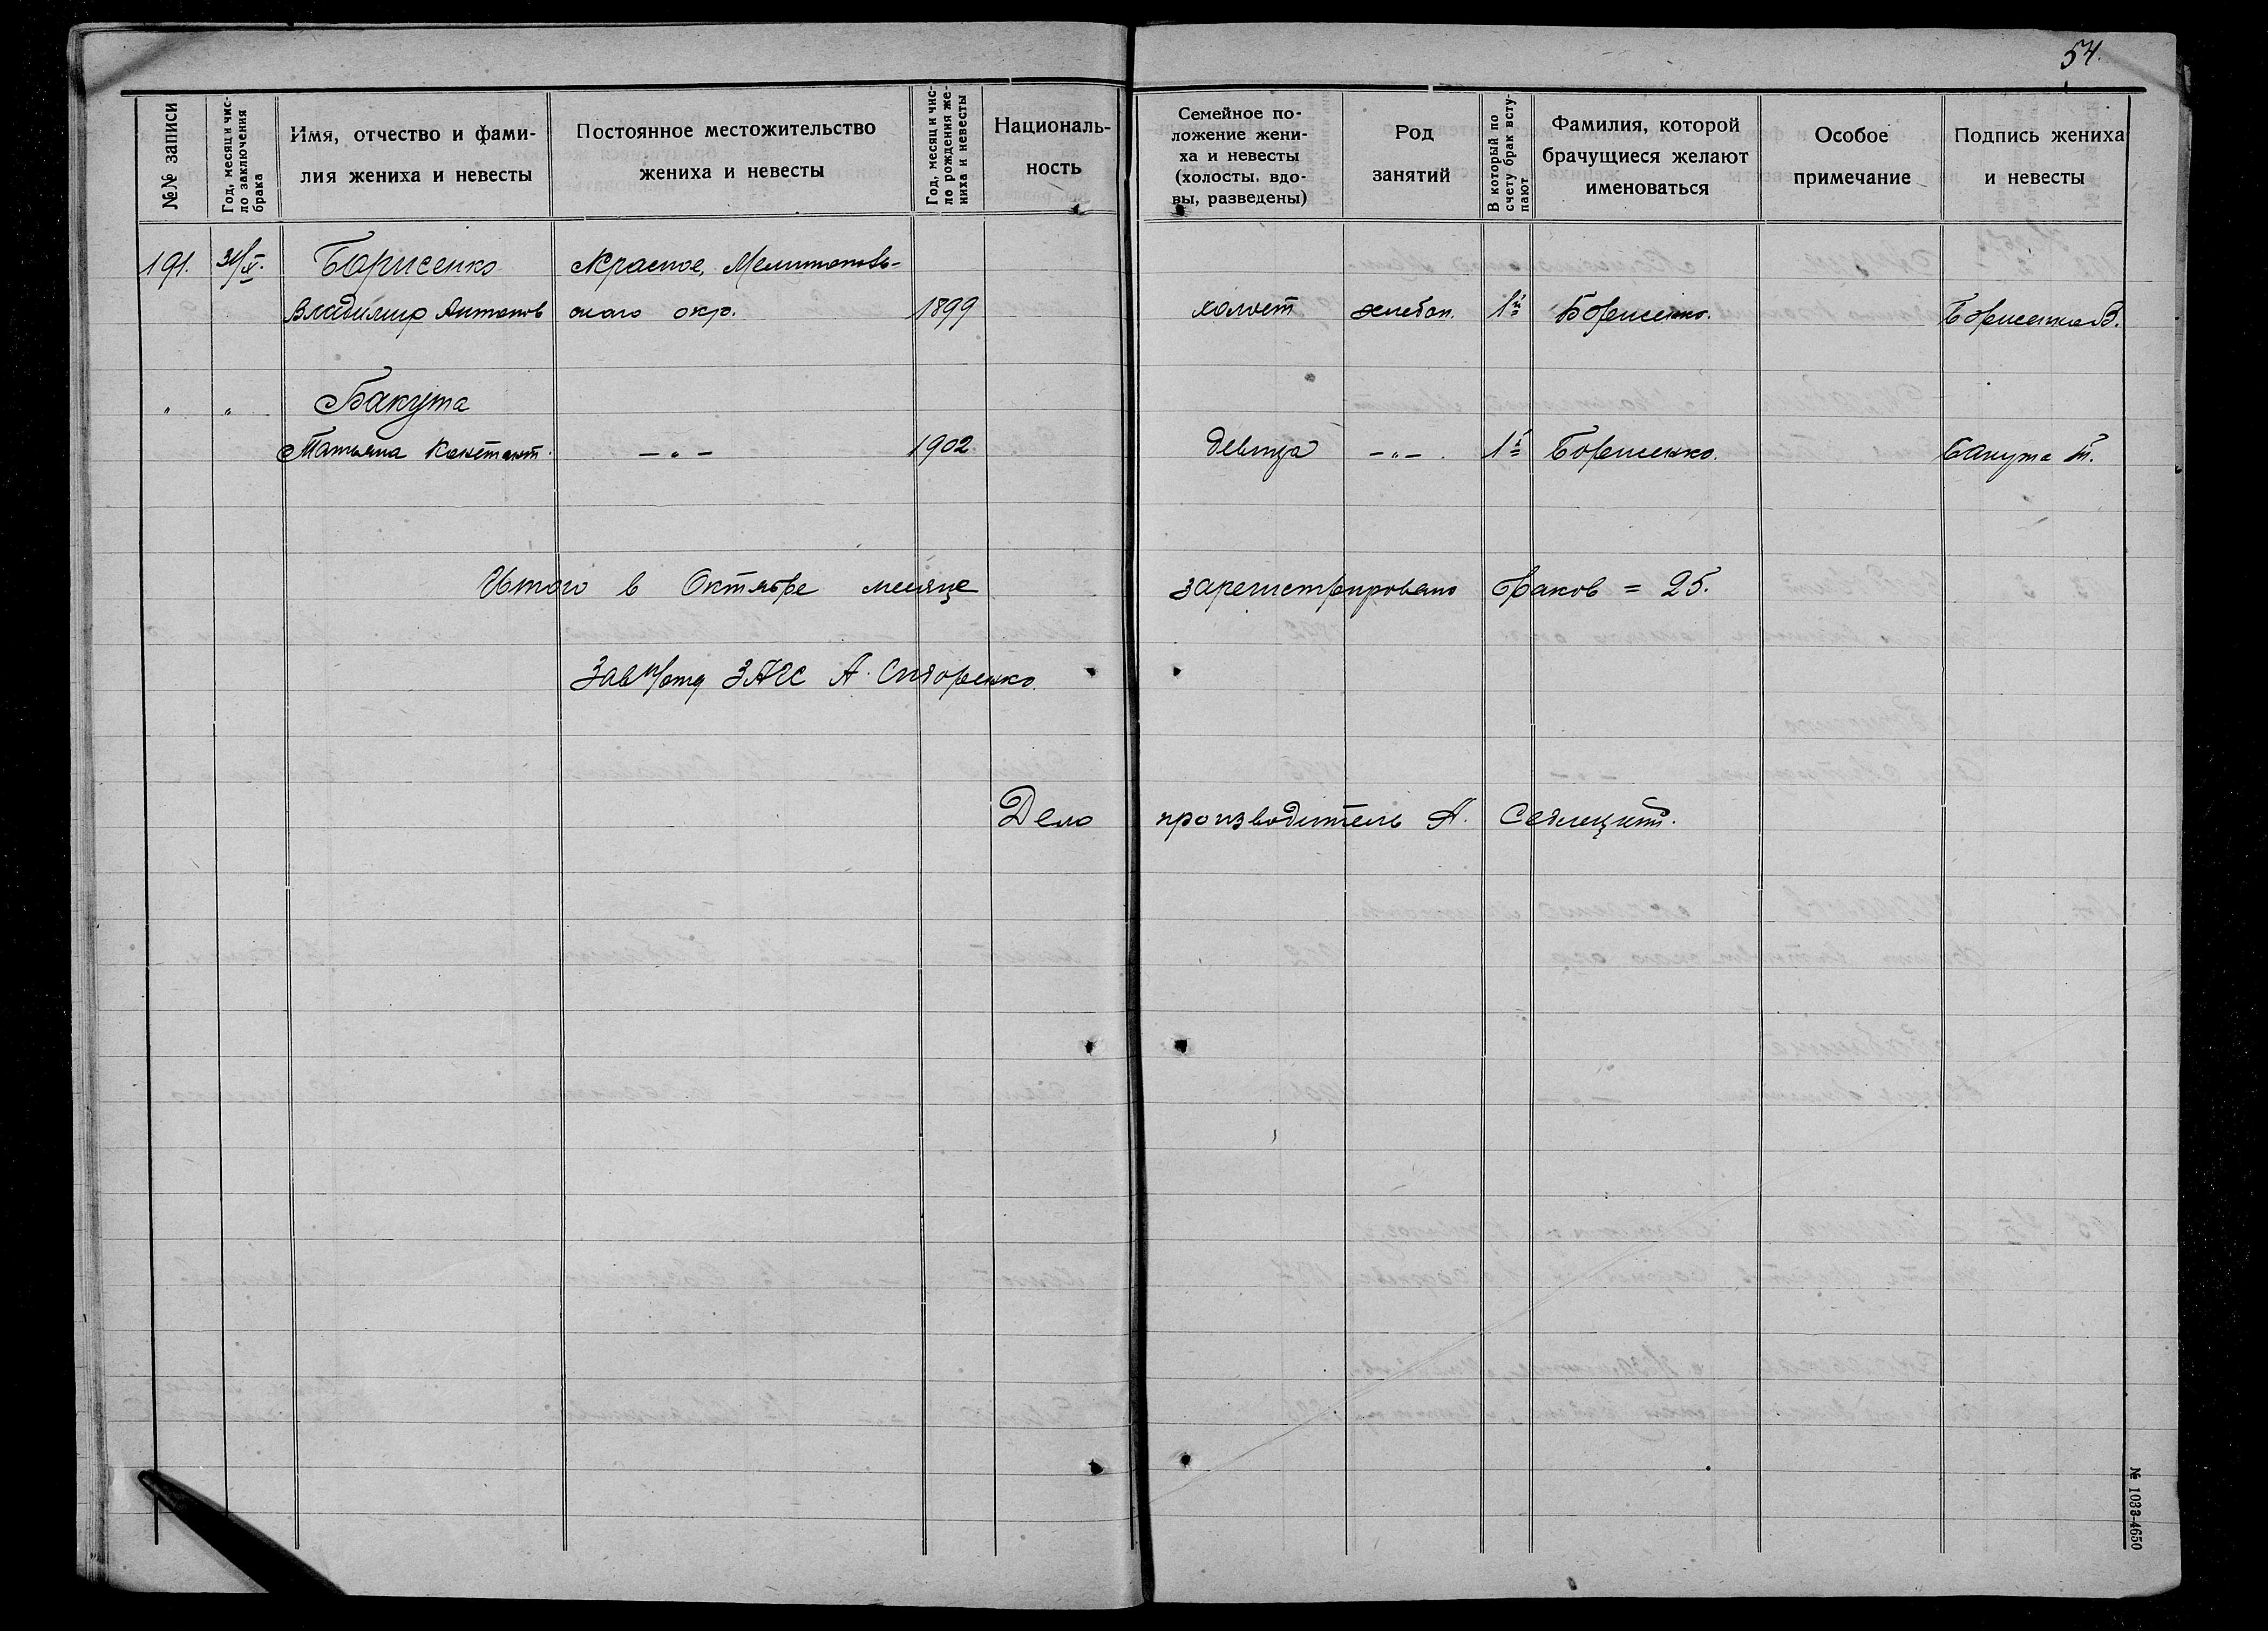 54.
№№ записи
Год, месяц и чис-
ло заключения
брака
Имя, отчество и фами-
лия жениха и невесты
Постоянное местожительство
жениха и невесты
Год, месяц и чис-
ло рождения же-
ниха и невесты
Националь-
ность
Семейное по-
ложение жени-
ха и невесты
(холосты, вдо-
вы, разведены)
Род
занятий
В который по
счету брак всту-
пают
Фамилия, которой
брачущиеся желают
именоваться
Особое
примечание
Подпись жениха
и невесты
191. 31/X. Борисенко Красное, Мелитополь-
Владимир Антонов ского окр. 1899 холост хлебоп. 1й Борисенко. Борисенко В.
" " Бакута
Татьяна Констант. — " — 1902 девица — " — 1й Борисенко. Бакута Т.
Итого в Октябре месяце зарегистрировано браков = 25.
Зав п/отд ЗАГС А. Сидоренко.
Дело производитель А. Седлецкий.
№ 1033-4650